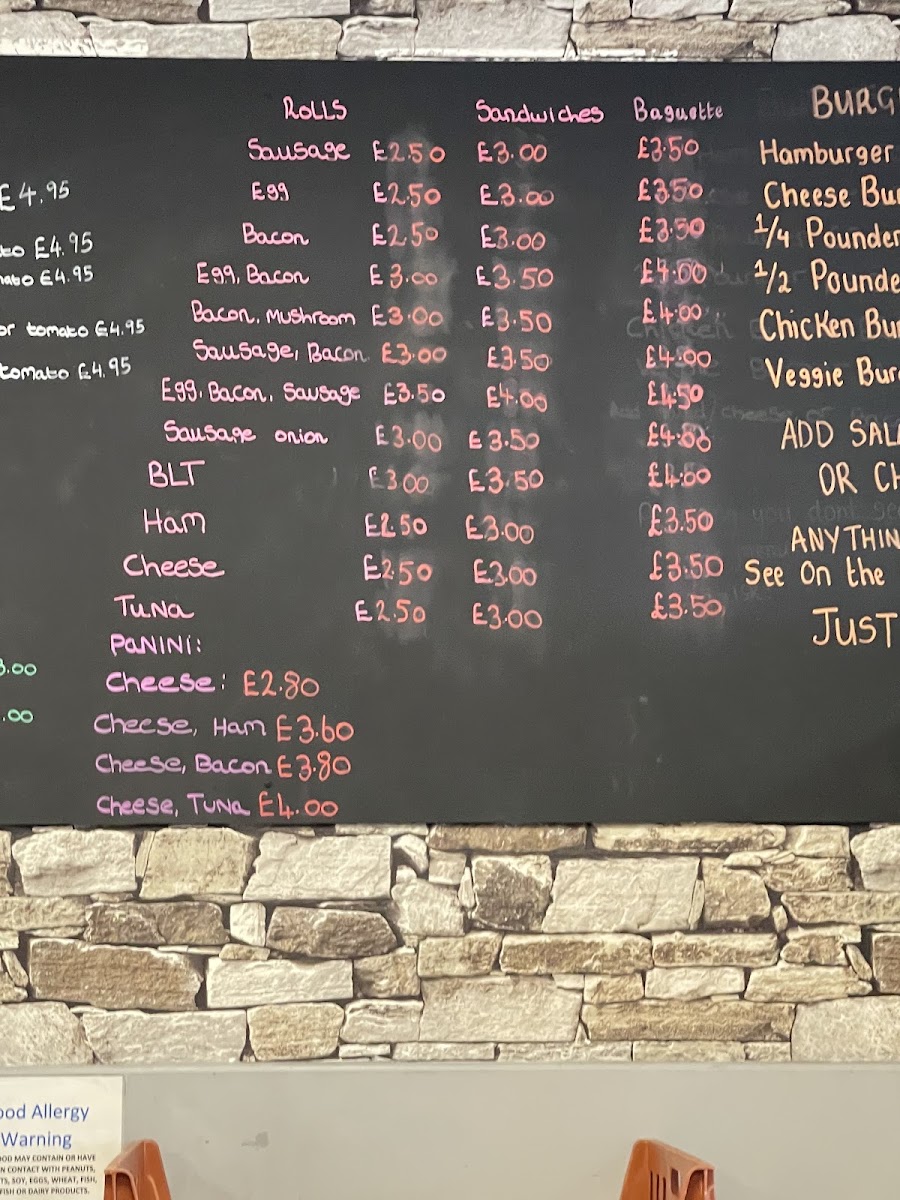 £4.95
£4.95
£4.95
or tomato £4.95
tomato £4.95
3.00
.00
ROLLS Sandwiches Baguette
Sausage £2.50 £3.00 £3.50
Egg £2.50 £3.00 £3.50
Bacon £2.50 £3.00 £3.50
Egg, Bacon £3.00 £3.50 £4.00
Bacon, Mushroom £3.00 £3.50 £4.00
Sausage, Bacon £3.00 £3.50 £4.00
Egg, Bacon, Sausage £3.50 £4.00 £4.50
Sausage onion £3.00 £3.50
BLT £3.00 £3.50
Ham £2.50 £3.00 £3.50
Cheese £2.50 £3.00 £3.50
Tuna £2.50 £3.00 £3.50
PANINI:
Cheese: £2.80
Cheese, Ham £3.60
Cheese, Bacon £3.80
Cheese, Tuna £4.00
BURG
Hamburger
Cheese Bu
1/4 Pounder
1/2 Pounde
Chicken Bu
Veggie Bur
ADD SAL
OR CH
ANYTHIN
See On the
JUST
ood Allergy
Warning
OOD MAY CONTAIN OR HAVE
N CONTACT WITH PEANUTS,
TS, SOY, EGGS, WHEAT, FISH,
FISH OR DAIRY PRODUCTS.